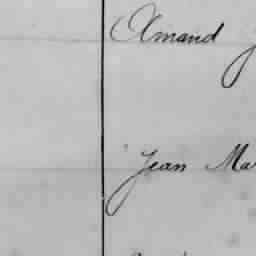 Amand
Jean Ma